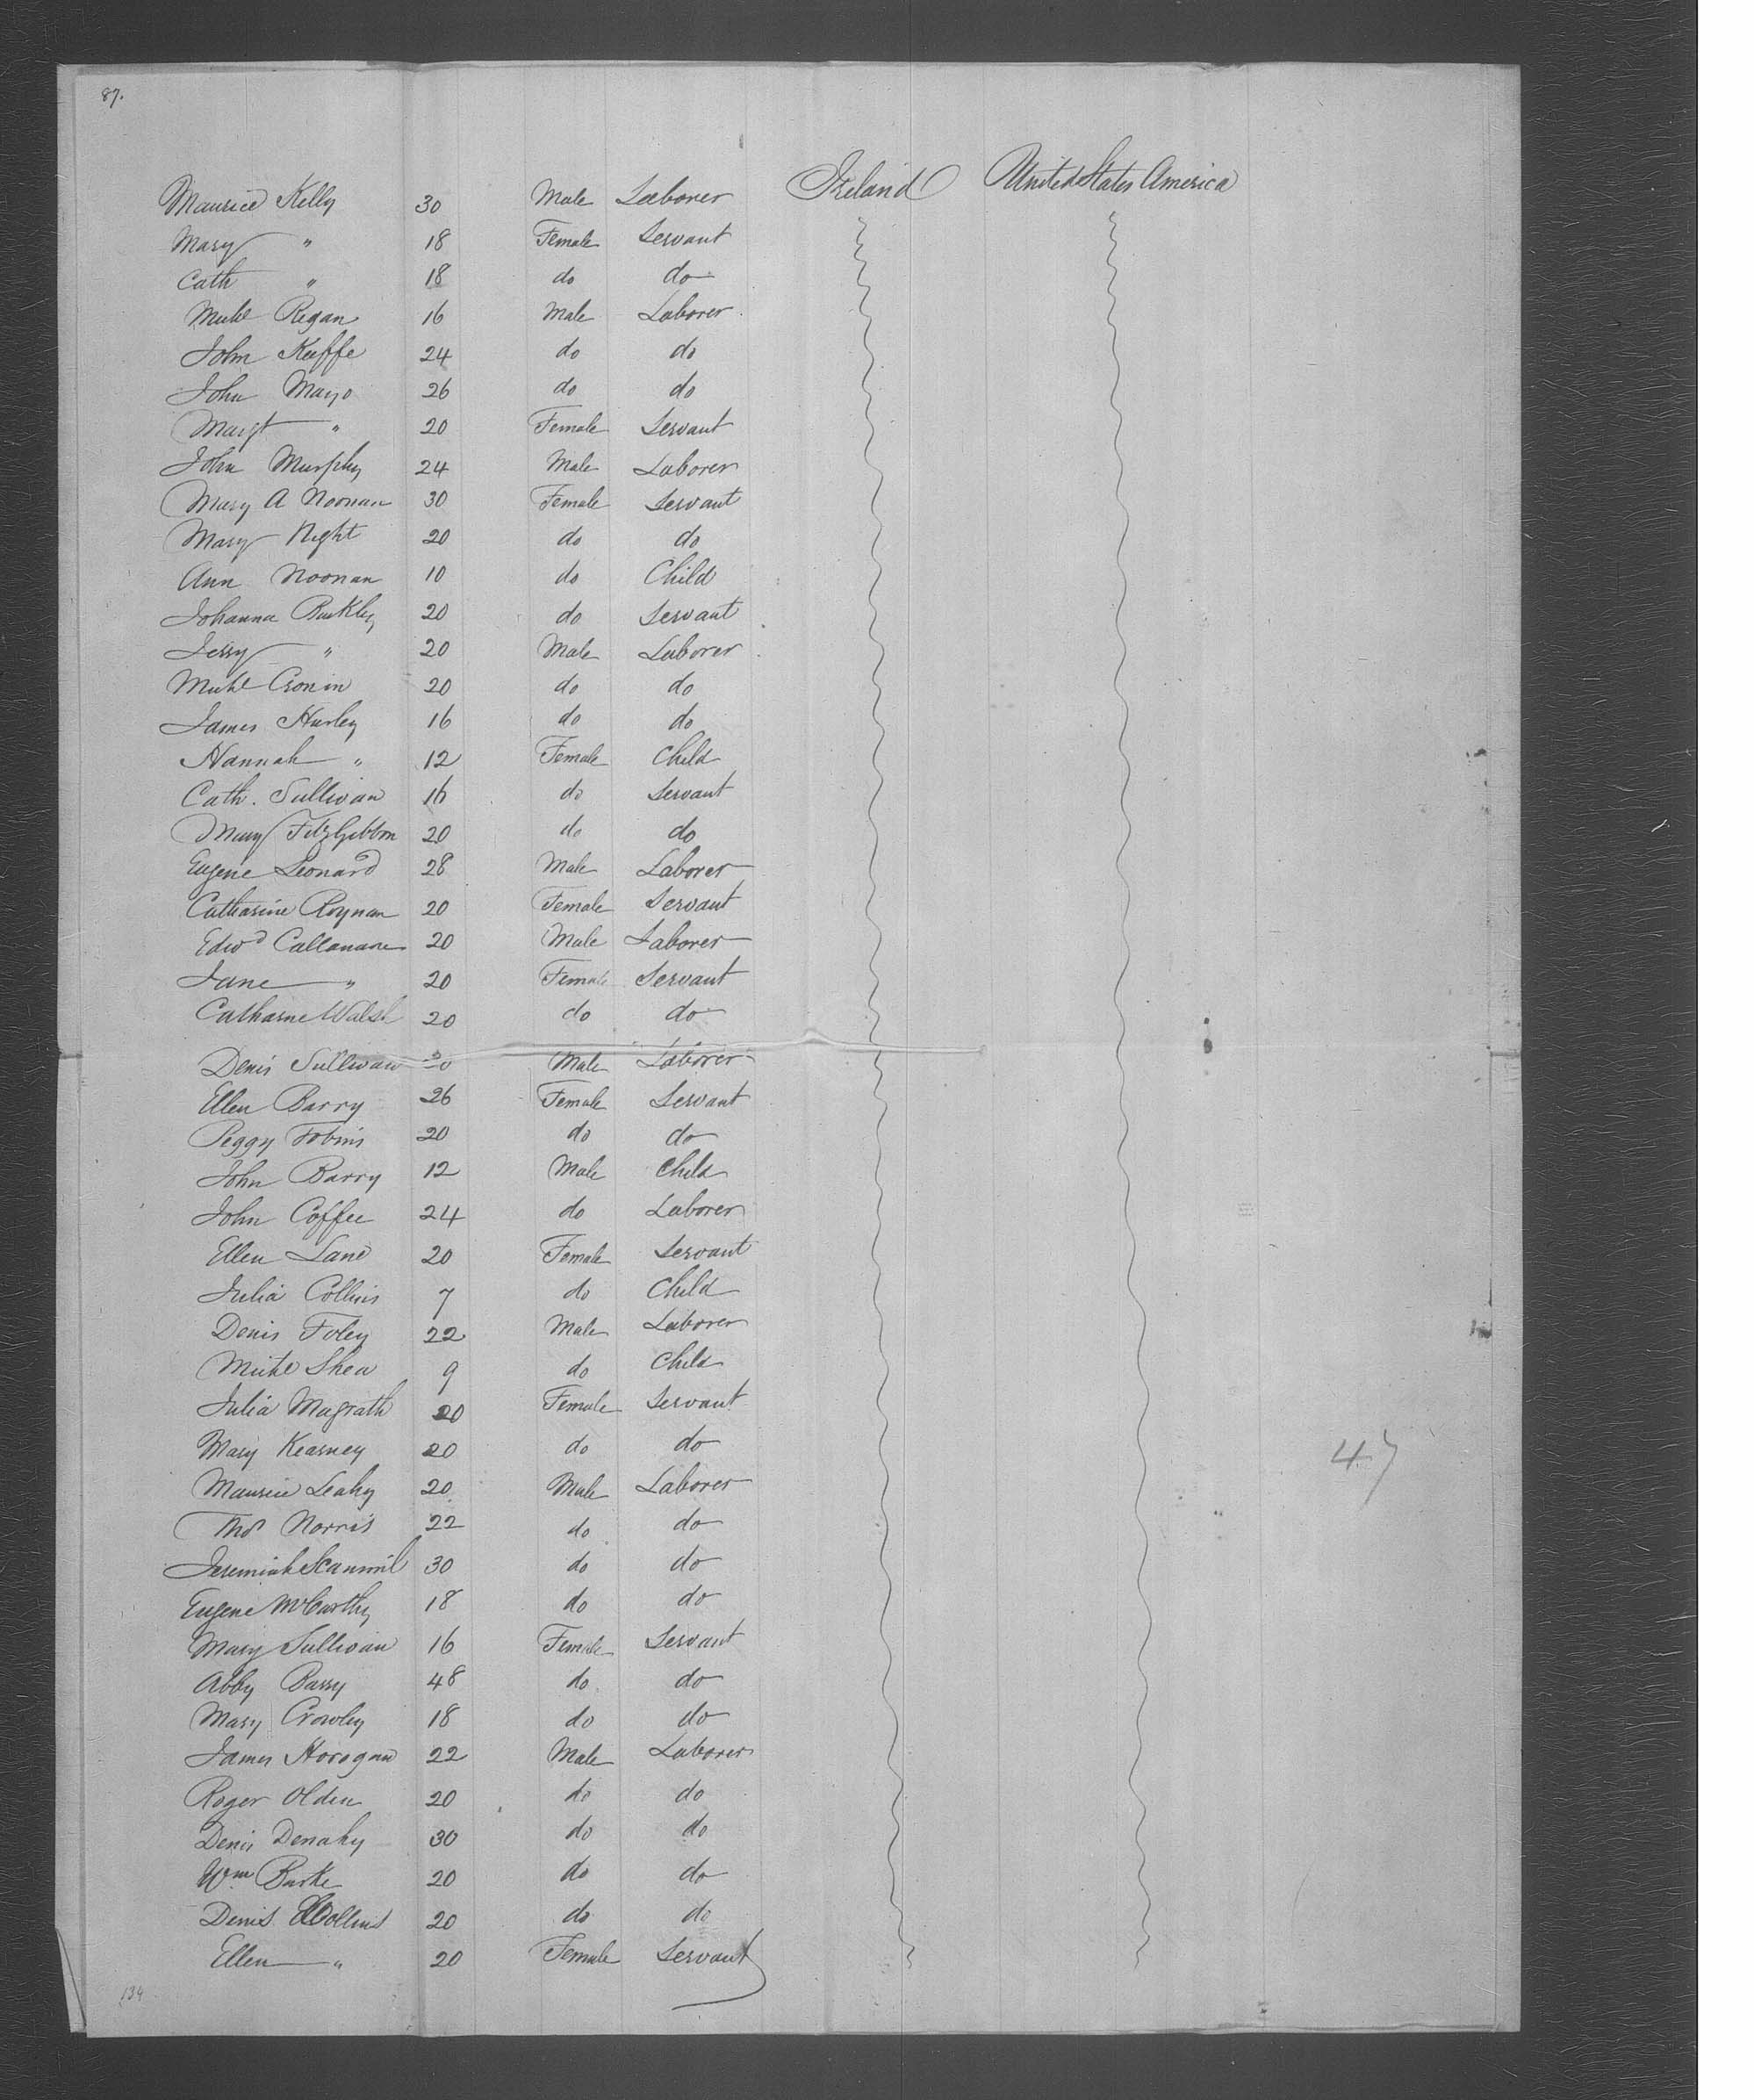 87.
Maurice Kelly 30 Male Laborer Ireland United States America
Mary " 18 Female Servant
Cath " 18 do do
Michl Regan 16 Male Laborer
John Keeffe 24 do do
John Mayo 26 do do
Margt " 20 Female Servant
John Murphy 24 Male Laborer
Mary A Noonan 30 Female Servant
Mary Night 20 do do
Ann Noonan 10 do Child
Johanna Buckley 20 do Servant
Jerry " 20 Male Laborer
Michl Cronin 20 do do
James Hurley 16 do do
Hannah " 12 Female Child
Cath. Sullivan 16 do Servant
Mary FitzGibbon 20 do do
Eugene Leonard 28 Male Laborer
Catharine Roynan 20 Female Servant
Edwd Callanane 20 Male Laborer
Jane " 20 Female Servant
Catharne Walsh 20 do do
Denis Sullivan Male Laborer
Ellen Barry 26 Female Servant
Peggy Tobin 20 do do
John Barry 12 Male Child
John Coffee 24 do Laborer
Ellen Lane 20 Female Servant
Julia Collins 7 do Child
Denis Foley 22 Male Laborer
Michl Shea 9 do Child
Julia Magrath 20 Female Servant
Mary Kearney 20 do do
47
Maurice Leahy 20 Male Laborer
Thos Norris 22 do do
Jeremiah 30 do do
Eugene McCarthy 18 do do
Mary Sullivan 16 Female Servant
Abby Barry 48 do do
Mary Crowley 18 do do
James Horogan 22 Male Laborer
Roger Olden 20 do do
Denis Denahy 30 do do
Wm Burke 20 do do
Denis Collins 20 do do
Ellen " 20 Female Servant
134